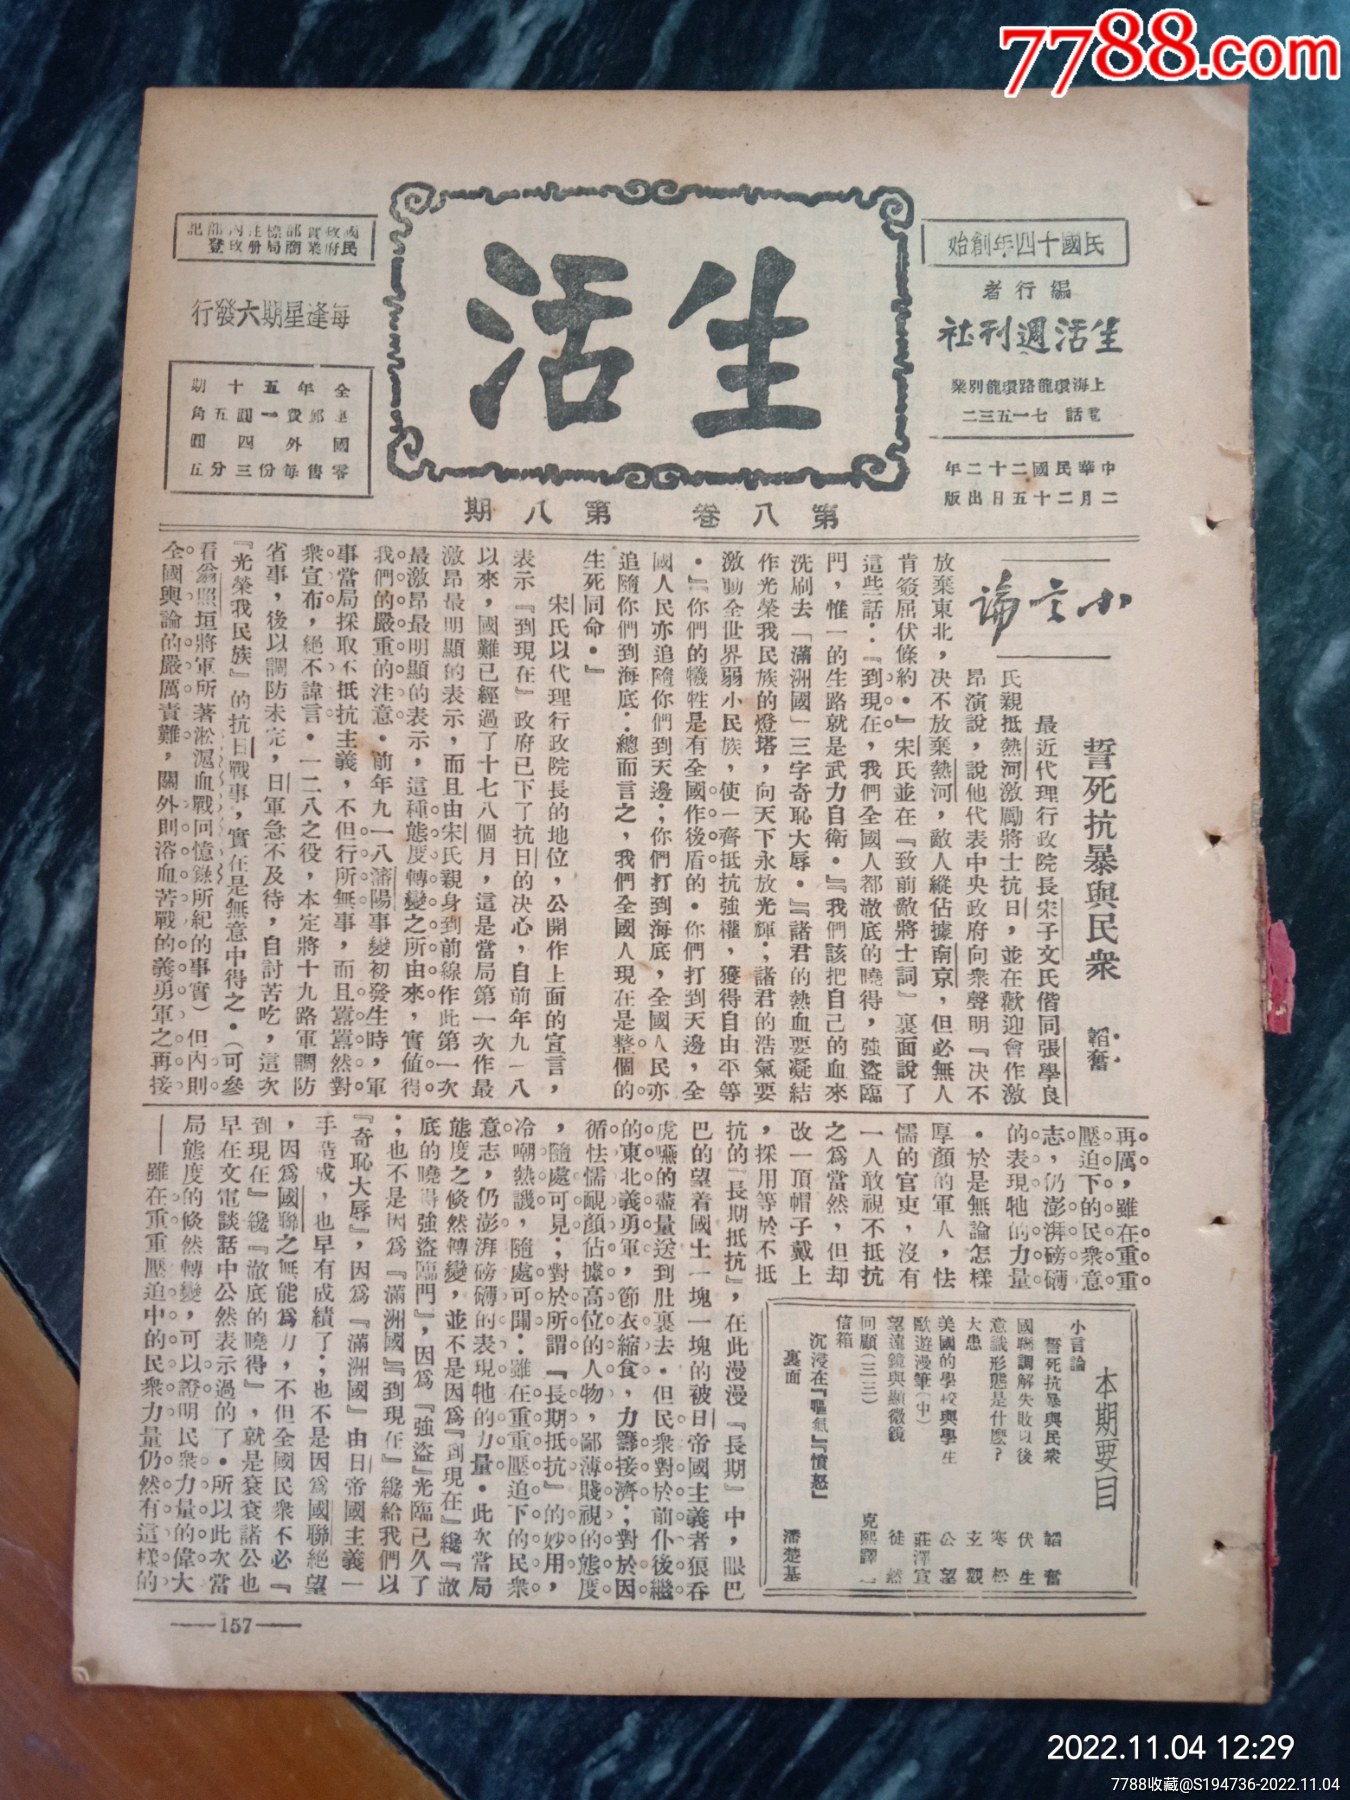 7788.com
民國十四年創始
編行者
生活週刊社
上海環龍路環龍別業
電話 七一五三二
中華民國二十二年
二月二十五日出版
生活
第八卷 第八期
國民政府實業部商標局註册內政部登記
每逢星期六發行
全年五十期
連郵費一圓五角
國外四圓
零售每份三分五
小言論
誓死抗暴與民衆
韜奮
最近代理行政院長宋子文氏偕同張學良
氏親抵熱河激勵將士抗日，並在歡迎會作激
昂演說，說他代表中央政府向衆聲明『決不
放棄東北，決不放棄熱河，敵人縱佔據南京，但必無人
肯簽屈伏條約．』宋氏並在『致前敵將士詞』裏面說了
這些話：『到現在，我們全國人都澈底的曉得，強盜臨
門，惟一的生路就是武力自衛．』『我們該把自己的血來
洗刷去「滿洲國」三字奇恥大辱．』『諸君的熱血要凝結
作光榮我民族的燈塔，向天下永放光輝；諸君的浩氣要
激動全世界弱小民族，使一齊抵抗強權，獲得自由平等
．』『你們的犧牲是有全國作後盾的．你們打到天邊，全
國人民亦追隨你們到天邊；你們打到海底，全國人民亦
追隨你們到海底：總而言之，我們全國人現在是整個的
生死同命．』
宋氏以代理行政院長的地位，公開作上面的宣言，
表示『到現在』政府已下了抗日的決心，自前年九一八
以來，國難已經過了十七八個月，這是當局第一次作最
激昂最明顯的表示，而且由宋氏親身到前線作此第一次
最激昂最明顯的表示，這種態度轉變之所由來，實值得
我們的嚴重的注意．前年九一八瀋陽事變初發生時，軍
事當局採取不抵抗主義，不但行所無事，而且囂囂然對
衆宣布，絕不諱言．一二八之役，本定將十九路軍調防
省事，後以調防未完，日軍急不及待，自討苦吃，這次
『光榮我民族』的抗日戰事，實在是無意中得之．（可參
看翁照垣將軍所著淞滬血戰回憶錄所紀的事實）但內則
全國輿論的嚴厲責難，關外則浴血苦戰的義勇軍之再接
再厲，雖在重重
壓迫下的民衆意
志，仍澎湃磅礡
的表現牠的力量
．於是無論怎樣
厚顏的軍人，怯
懦的官吏，沒有
一人敢視不抵抗
之爲當然，但却
改一頂帽子戴上
，採用等於不抵
抗的『長期抵抗』，在此漫漫『長期』中，眼巴
巴的望着國土一塊一塊的被日帝國主義者狼吞
虎嚥的盡量送到肚裏去．但民衆對於前仆後繼
的東北義勇軍，節衣縮食，力籌接濟；對於因
循怯懦靦顏佔據高位的人物，鄙薄賤視的態度
，隨處可見；對於所謂『長期抵抗』的妙用，
冷嘲熱譏，隨處可聞：雖在重重壓迫下的民衆
意志，仍澎湃磅礡的表現牠的力量．此次當局
態度之倏然轉變，並不是因爲『到現在』纔『澈
底的曉得強盜臨門』，因爲『強盜』光臨已久了
；也不是因爲『滿洲國』『到現在』纔給我們以
『奇恥大辱』，因爲『滿洲國』由日帝國主義一
手造成，也早有成績了；也不是因爲國聯絕望
，因爲國聯之無能爲力，不但全國民衆不必『
到現在』纔『澈底的曉得』，就是衮衮諸公也
早在文電談話中公然表示過的了．所以此次當
局態度的倏然轉變，可以證明民衆力量的偉大
——雖在重重壓迫中的民衆力量仍然有這樣的
本期要目
小言論
誓死抗暴與民衆 韜奮
國聯調解失敗以後 伏生
意識形態是什麼？ 寒松
大患 玄觀
美國的學校與學生 公望
歐遊漫筆（中） 莊澤宣
望遠鏡與顯微鏡 徒然
回顧（三三） 克熙譯
信箱
沉浸在『嘔氣』『憤怒』
裏面 潘楚基
157
2022.11.04 12:29
7788收藏@S194736-2022.11.04